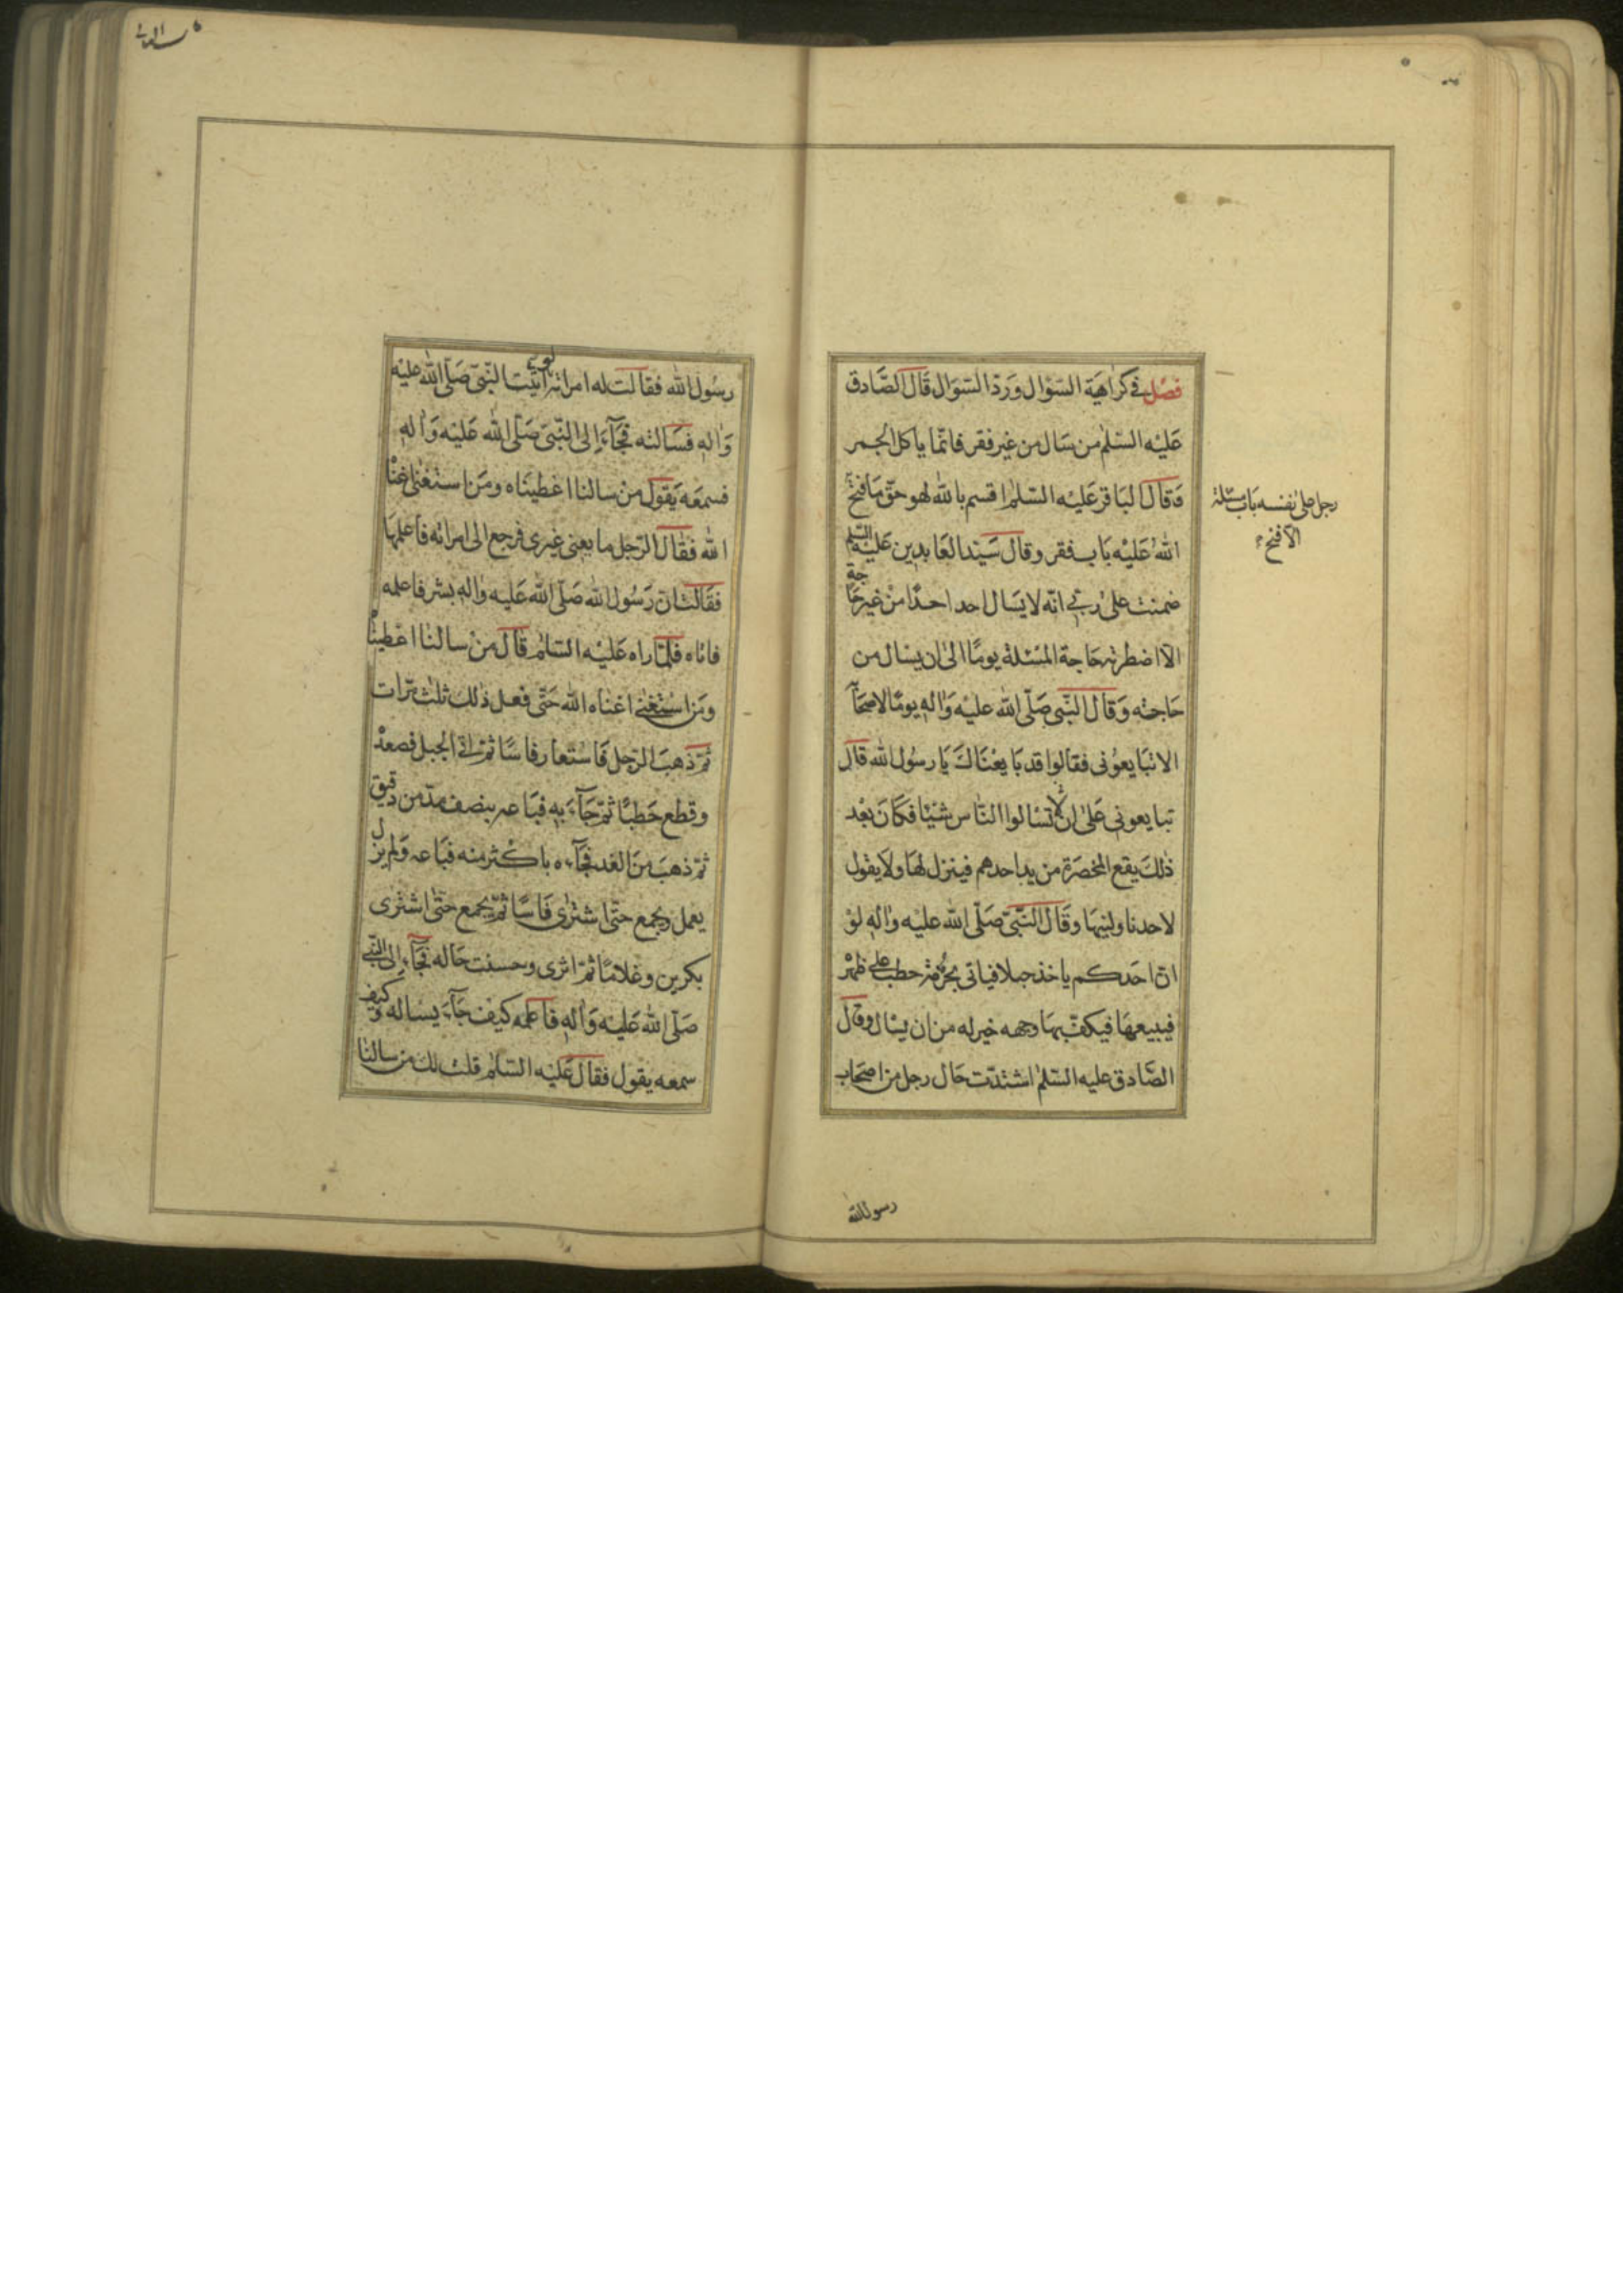 فصل في كراهية السؤال ورد السؤال قال الصادق
عليه السلم من سال من غير فقر فانما ياكل الجمر
وقال الباقر عليه السلم اقسم بالله لهو حق ما فتح
رجل على نفسه باب مسئلة
الا فتح
الله عليه باب فقر وقال سيد العابدين عليه السلم
ضمنت على ربي انه لا يسال احد احدا من غير حاجة
الا اضطرته حاجة المسئلة يوما الى ان يسال من
حاجته وقال النبي صلى الله عليه واله يوما لاصحابه
الا تبايعوني فقالوا قد بايعناك يا رسول الله قال
تبايعوني على ان لا تسالوا الناس شيئا فكان بعد
ذلك يقع المخصرة من يد احدهم فينزل لها ولا يقول
لاحد ناولنيها وقال النبي صلى الله عليه واله لو
ان احدكم ياخذ حبلا فياتي بحزمة حطب على ظهره
فيبيعها فيكف بها وجهه خير له من ان يسال وقال
الصادق عليه السلم اشتدت حال رجل من اصحاب
رسول الله
رسول الله فقالت له امراته لو اتيت النبي صلى الله عليه
واله فسالته فجاء الى النبي صلى الله عليه واله
فسمعه يقول من سالنا اعطيناه ومن استغنى اغناه
الله فقال الرجل ما يعني غيري فرجع الى امراته فاعلمها
فقالت ان رسول الله صلى الله عليه واله بشر فاعلمه
فاتاه فلما راه عليه السلام قال من سالنا اعطيناه
ومن استغنى اغناه الله حتى فعل ذلك ثلث مرات
ثم ذهب الرجل فاستعار فاسا ثم اتى الجبل فصعده
وقطع حطبا ثم جاء به فباعه بنصف مد من دقيق
ثم ذهب من الغد فجاءه باكثر منه فباعه ولم يزل
يعمل ويجمع حتى اشترى فاسا ثم يجمع حتى اشترى
بكرين وغلاما ثم اثرى وحسنت حاله فجاء الى النبي
صلى الله عليه واله فاعلمه كيف جاء يساله وكيف
سمعه يقول فقال عليه السلام قلت لك من سالنا